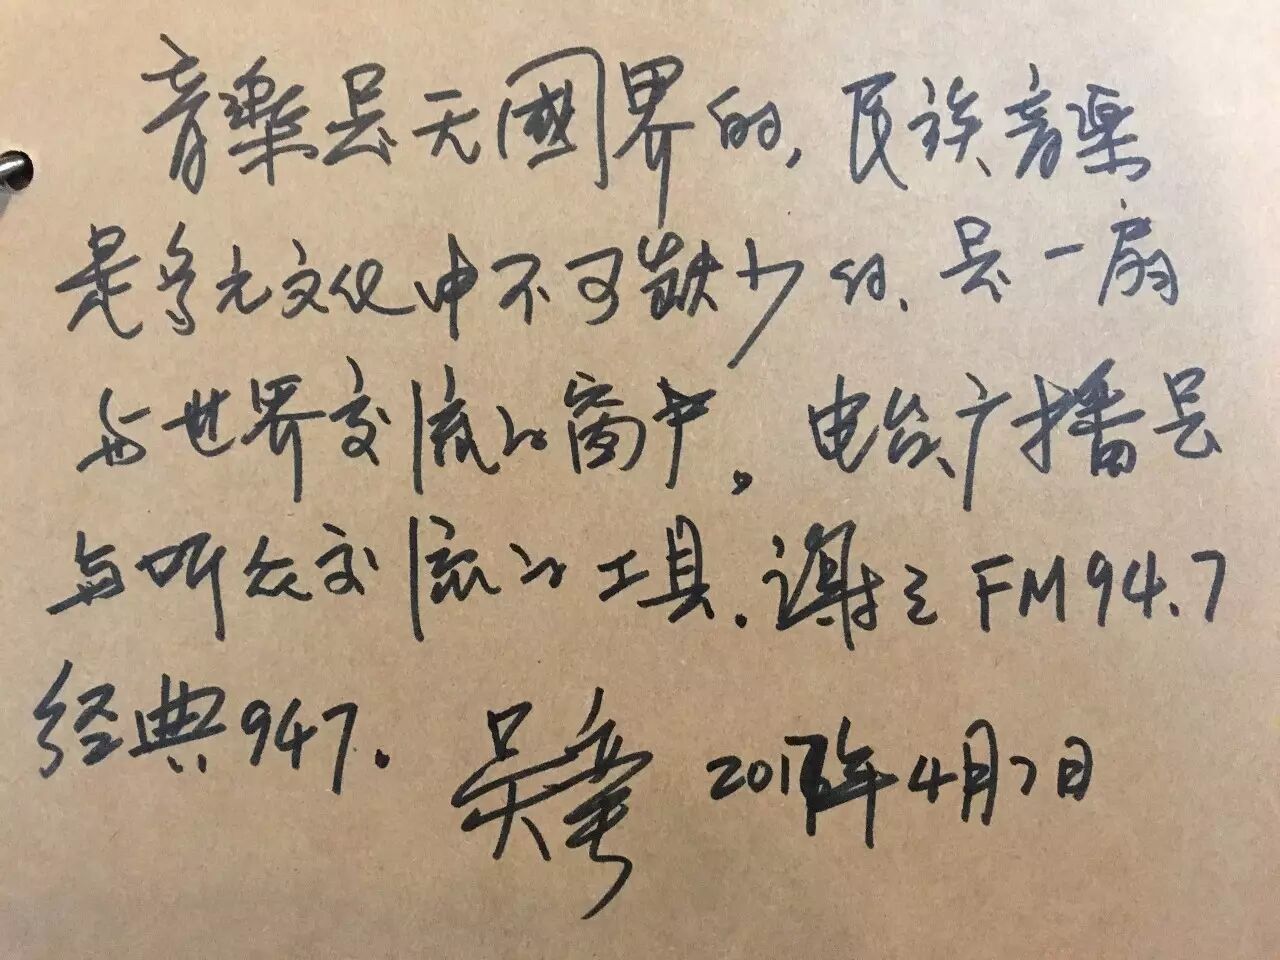 音樂是无國界的，民族音樂
是多元文化中不可缺少的、是一扇
与世界交流的窗户。电台广播是
与听众交流的工具.谢之FM94.7
经典947.
吴 2017年4月7日